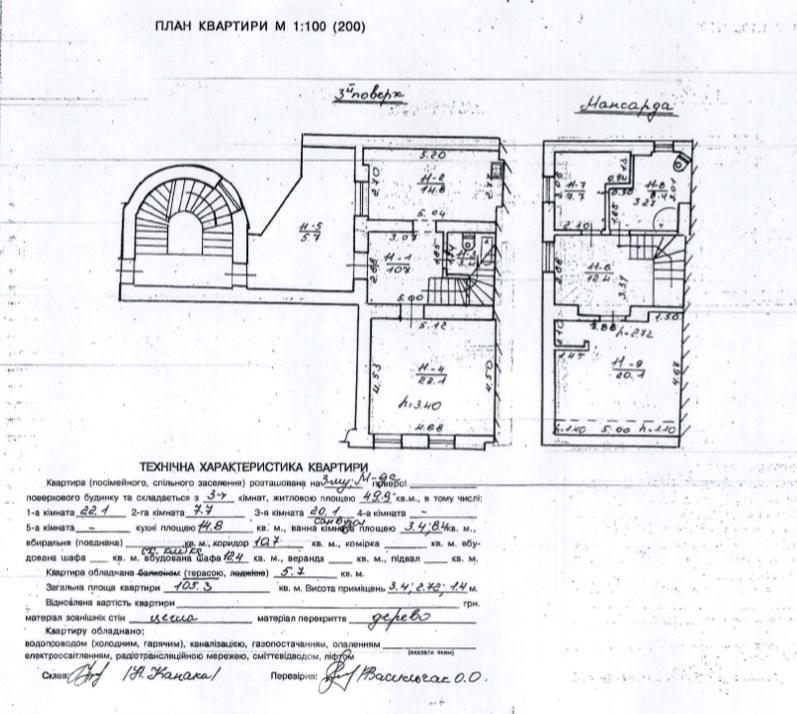 ПЛАН КВАРТИРИ М 1:100 (200)
3й поверх
Мансарда
5.20
11-2
14.8
2.70
5.04
11-5
5.7
3.07
11-1
10.7
2.88
1.85
5.00
5.12
4.53
11-4
22.1
4.50
h=3.40
4.88
11-7
7.7
0.90
11-8
8.4
3.21
2.10
11-6
12.4
3.31
1.50
h=2.72
1.47
11-9
20.1
4.67
h=1.40
5.00
h=1.10
ТЕХНІЧНА ХАРАКТЕРИСТИКА КВАРТИРИ
Квартира (посімейного, спільного заселення) розташована на 3му, М-ді поверсі
поверхового будинку та складається з 3-х кімнат, житловою площею 49.9 кв.м., в тому числі:
1-а кімната 22.1 2-га кімната 7.7 3-я кімната 20.1 4-а кімната -
5-а кімната - кухні площею 14.8 кв. м., ванна кімната санвузол площею 3.4; 8.4 кв. м.,
вбиральня (поєднана) кв. м., коридор 10.7 кв. м., комірка кв. м. вбу-
дована шафа кв. м. вбудована шафа 12.4 кв. м., веранда кв. м., підвал кв. м.
Квартира обладнана балконом (терасою, лоджією) 5.7 кв. м.
Загальна площа квартири 105.3 кв. м. Висота приміщень 3.4; 2.72; 1.4 м.
Відновлена вартість квартири грн.
матеріал зовнішніх стін цегла матеріал перекриття дерево
Квартиру обладнано:
водопроводом (холодним, гарячим), каналізацією, газопостачанням, опаленням
(вказати яким)
електроосвітленням, радіотрансляційною мережею, сміттєвідводом, ліфтом
Склав: Перевірив: О.О.